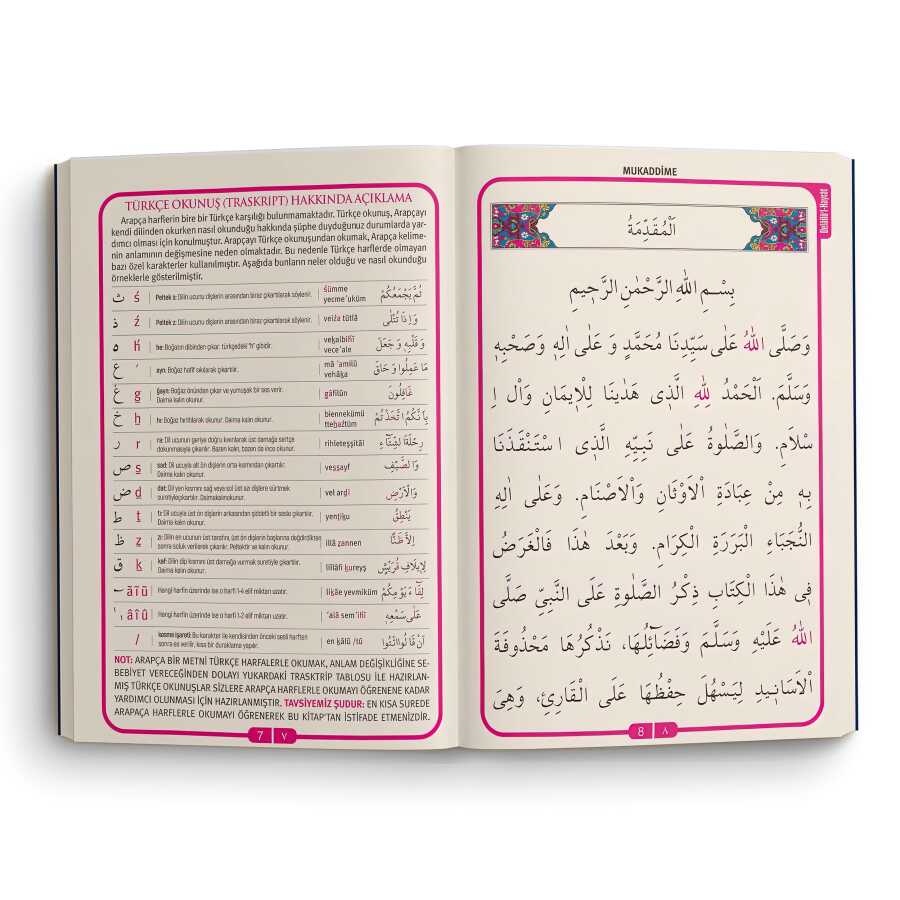 TÜRKÇE OKUNUŞ (TRASKRIPT) HAKKINDA AÇIKLAMA
Arapça harflerin bire bir Türkçe karşılığı bulunmamaktadır. Türkçe okunuş, Arapçayı
kendi dilinden okurken nasıl okunduğu hakkında şüphe duyduğunuz durumlarda yar-
dımcı olması için konulmuştur. Arapçayı Türkçe okunuşundan okumak, Arapça kelime-
nin anlamının değişmesine neden olmaktadır. Bu nedenle Türkçe harflerde olmayan
bazı özel karakterler kullanılmıştır. Aşağıda bunların neler olduğu ve nasıl okunduğu
örneklerle gösterilmiştir.
ث ś Peltek s: Dilin ucunu dişlerin arasından biraz çıkartılarak söylenir. śümme yecme'uküm ثُمَّ يَجْمَعُكُمْ
ذ ź Peltek z: Dilin ucunu dişlerin arasından biraz çıkartılarak söylenir. veiźa tütlâ وَ اِذَا تُتْلٰى
ه he: Boğazın dibinden çıkar. türkçedeki "h" gibidir. vece'ale وَ قَلْبِه۪ وَ جَعَلَ
ع ' ayn: Boğaz hafif sıkılarak çıkartılır. mâ 'amilû vehâḳa مَا عَمِلُوا وَ حَاقَ
غ g ğayn: Boğaz önünden çıkar ve yumuşak bir ses verir.
Daima kalın okunur. gâfilûn غَافِلُونَ
خ ḫ hı: Boğaz hırıltılarak okunur. Daima kalın okunur. biennekümü tteḫaźtüm بِاَنَّكُمُ اتَّخَذْتُمْ
ر r ra: Dil ucunun geriye doğru kıvrılarak üst damağa sertçe
dokunmasıyla çıkartılır. Bazen kalın, bazen de ince okunur. rihleteşşitâi رِحْلَةَ الشِّتَٓاءِ
ص ṣ sad: Dil ucuyla alt ön dişlerin orta kısmından çıkartılır.
Daima kalın okunur. veṣṣayf وَالصَّيْفِ
ض ḍ dat: Dil yan kısmını sağ veya sol üst azı dişlere sürtmek
suretiyle çıkartılır. Daima kalın okunur. vel arḍi وَالْاَرْضِ
ط ṭ tı: Dil ucuyla üst ön dişlerin arkasından şiddetli bir sesle çıkartılır.
Daima kalın okunur. yenṭiḳu يَنْطِقُ
ظ ẓ zı: Dilin en ucunun üst tarafını, üst ön dişlerin başlarına değdirdikten
sonra soluk verilerek çıkarılır. Peltektir ve kalın okunur. illâ ẓannen اِلَّا ظَنًّا
ق ḳ kaf: Dilin dip kısmını üst damağa vurmak suretiyle çıkartılır.
Daima kalın okunur. liîlâfi ḳureyş لِا۪يلَافِ قُرَيْشٍ
ā ī ū Hangi harfin üzerinde ise o harfi 1-4 elif miktarı uzatır. liḳâe yevmiküm لِقَٓاءَ يَوْمِكُمْ
â î û Hangi harfin üzerinde ise o harfi 1-2 elif miktarı uzatır. 'alâ sem'ihî عَلٰى سَمْعِه۪
/ kesme işareti: Bu karakter ile kendisinden önceki sesli harften
sonra es verilir, kısa bir duraklama yapılır. en ḳâlû /tû اَنْ قَالُوا ائْتُوا
NOT: ARAPÇA BİR METNİ TÜRKÇE HARFALERLE OKUMAK, ANLAM DEĞİŞİKLİĞİNE SE-
BEBİYET VERECEĞİNDEN DOLAYI YUKARDAKİ TRASKTRİP TABLOSU İLE HAZIRLAN-
MIŞ TÜRKÇE OKUNUŞLAR SİZLERE ARAPÇA HARFLERLE OKUMAYI ÖĞRENENE KADAR
YARDIMCI OLUNMASI İÇİN HAZIRLANMIŞTIR. TAVSİYEMİZ ŞUDUR: EN KISA SUREDE
ARAPAÇA HARFLERLE OKUMAYI ÖĞRENEREK BU KİTAP'TAN İSTİFADE ETMENİZDİR.
7 ٧
MUKADDİME
Delâilü'l-Hayrât
اَلْمُقَدِّمَةُ
بِسْــمِ اللّٰهِ الرَّحْمٰنِ الرَّح۪يمِ
وَصَلَّى اللّٰهُ عَلٰى سَيِّدِنَا مُحَمَّدٍ وَ عَلٰى اٰلِه۪ وَصَحْبِه۪
وَسَلَّمَ. اَلْحَمْدُ لِلّٰهِ الَّذ۪ى هَدٰينَا لِلْا۪يمَانِ وَاْل ا
سْلَامِ. وَالصَّلٰوةُ عَلٰى نَبِيِّهِ الَّذِى اسْتَنْقَذَنَا
بِه۪ مِنْ عِبَادَةِ الْاَوْثَانِ وَالْاَصْنَامِ. وَعَلٰى اٰلِهِ
النُّجَبَاءِ الْبَرَرَةِ الْكِرَامِ. وَبَعْدَ هٰذَا فَالْغَرَضُ
ف۪ى هٰذَا الْكِتَابِ ذِكْرُ الصَّلٰوةِ عَلَى النَّبِىِّ صَلَّى
اللّٰهُ عَلَيْهِ وَسَلَّمَ وَفَضَائِلُهَا، نَذْكُرُهَا مَحْذُوفَةَ
الْاَسَان۪يدِ لِيَسْهُلَ حِفْظُهَا عَلَى الْقَارِئِ، وَهِىَ
8 ٨